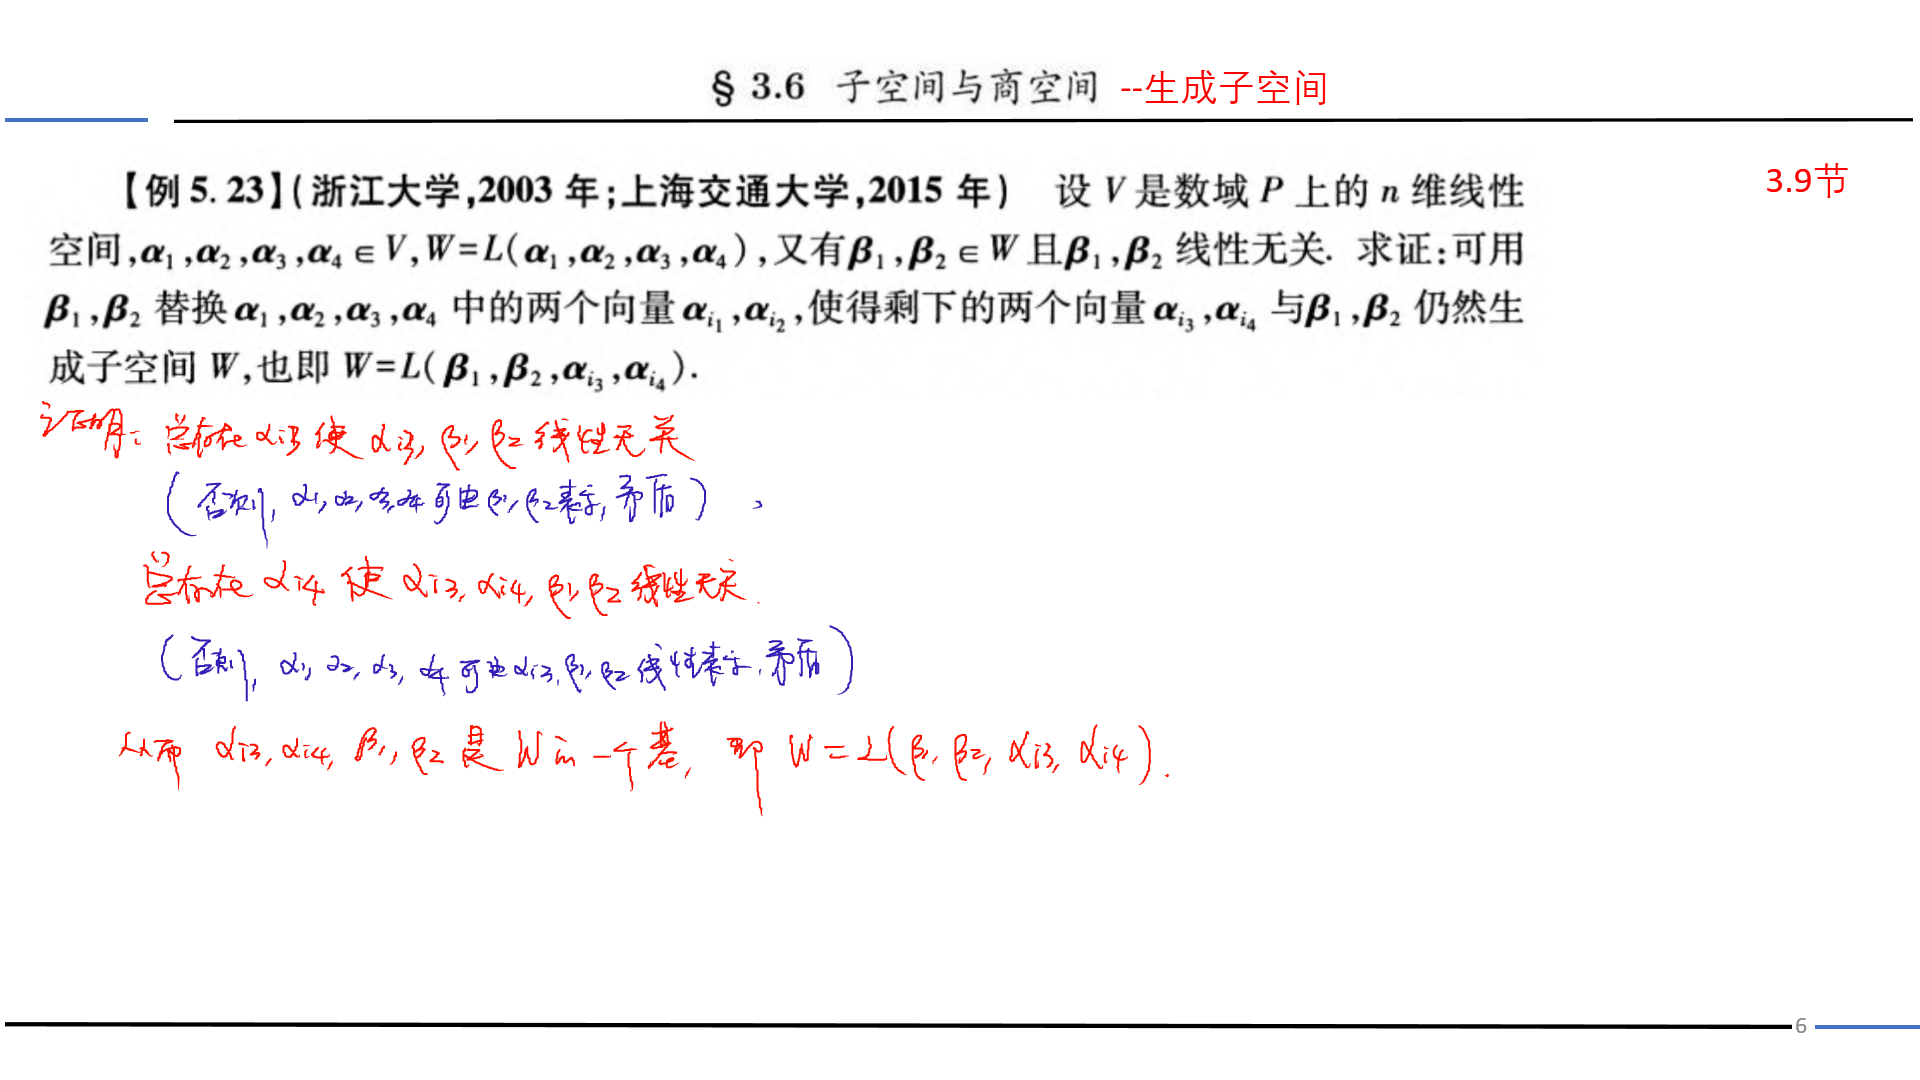 § 3.6 子空间与商空间 --生成子空间
3.9节
【例 5.23】(浙江大学,2003 年;上海交通大学,2015 年) 设 V 是数域 P 上的 n 维线性
空间,α₁,α₂,α₃,α₄∈V,W=L(α₁,α₂,α₃,α₄),又有β₁,β₂∈W 且β₁,β₂ 线性无关. 求证:可用
β₁,β₂ 替换 α₁,α₂,α₃,α₄ 中的两个向量 α_{i₁},α_{i₂},使得剩下的两个向量 α_{i₃},α_{i₄} 与β₁,β₂ 仍然生
成子空间 W,也即 W=L(β₁,β₂,α_{i₃},α_{i₄}).
证明: 总存在 αi3 使 αi3, β1, β2 线性无关
(否则, α1, α2, α3, α4 可由 β1, β2 表示, 矛盾) ,
总存在 αi4 使 αi3, αi4, β1, β2 线性无关.
(否则, α1, α2, α3, α4 可由 αi3, β1, β2 线性表示, 矛盾)
从而 αi3, αi4, β1, β2 是 W 的一个基, 即 W = L(β1, β2, αi3, αi4).
6